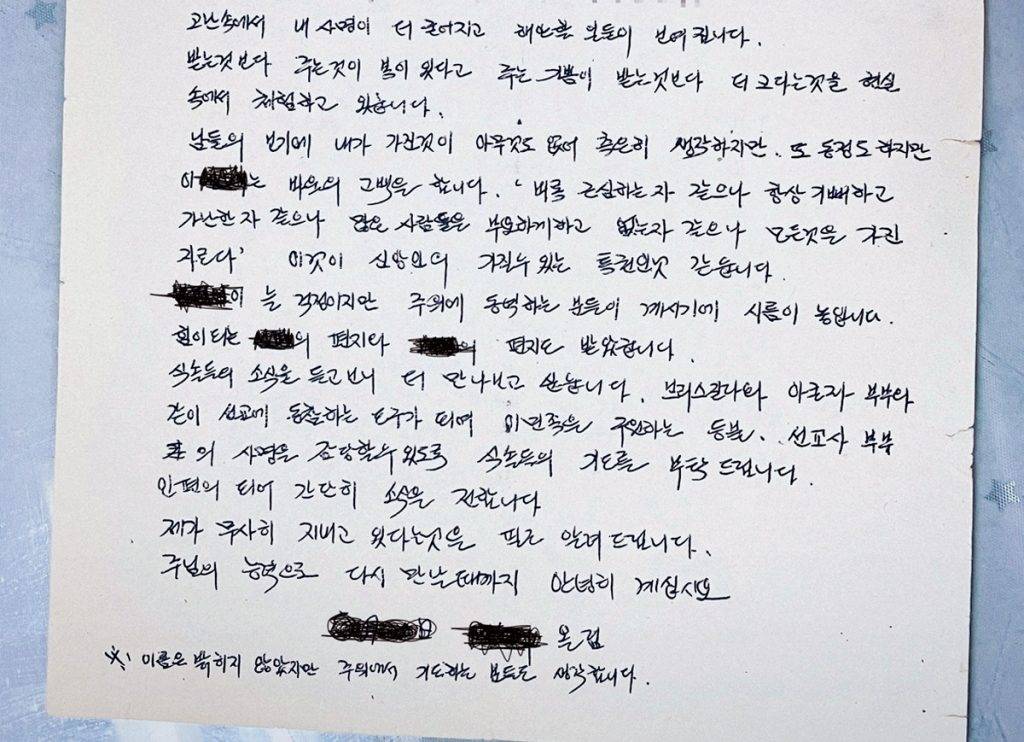 고난속에서 내 사명이 더 굳어지고 해야할 일들이 보여집니다.
받는것보다 주는것이 복이 있다고 주는 기쁨이 받는것보다 더 크다는것을 현실
속에서 체험하고 있습니다.
남들의 보기에 내가 가진것이 아무것도 없어 측은히 생각하지만. 또 동정도 하지만
는 바울의 고백을 합니다. ' 비록 근심하는 자 같으나 항상 기뻐하고
가난한 자 같으나 많은 사람들을 부요하게하고 없는자 같으나 모든것을 가진
자로다' 이것이 신앙인의 가질수 있는 특권인것 같습니다.
이 늘 걱정이지만 주위에 동역하는 분들이 계서기에 시름이 놓입니다.
힘이되는 의 편지와 의 편지도 받았습니다.
식솔들의 소식을 듣고보니 더 만나보고 싶습니다. 브리스길라와 아굴라 부부와
같이 선교에 동참하는 도구가 되며 이민족을 구원하는 등불. 선교사 부부
의 사명을 감당할수 있도록 식솔들의 기도를 부탁 드립니다.
인편의 되어 간단히 소식을 전합니다
제가 무사히 지내고 있다는것을 필로 알려 드립니다.
주님의 능력으로 다시 만날때까지 안녕히 계십시오
올림
※ 이름은 밝히지 않았지만 주위에서 기도하는 분들도 생각합니다.